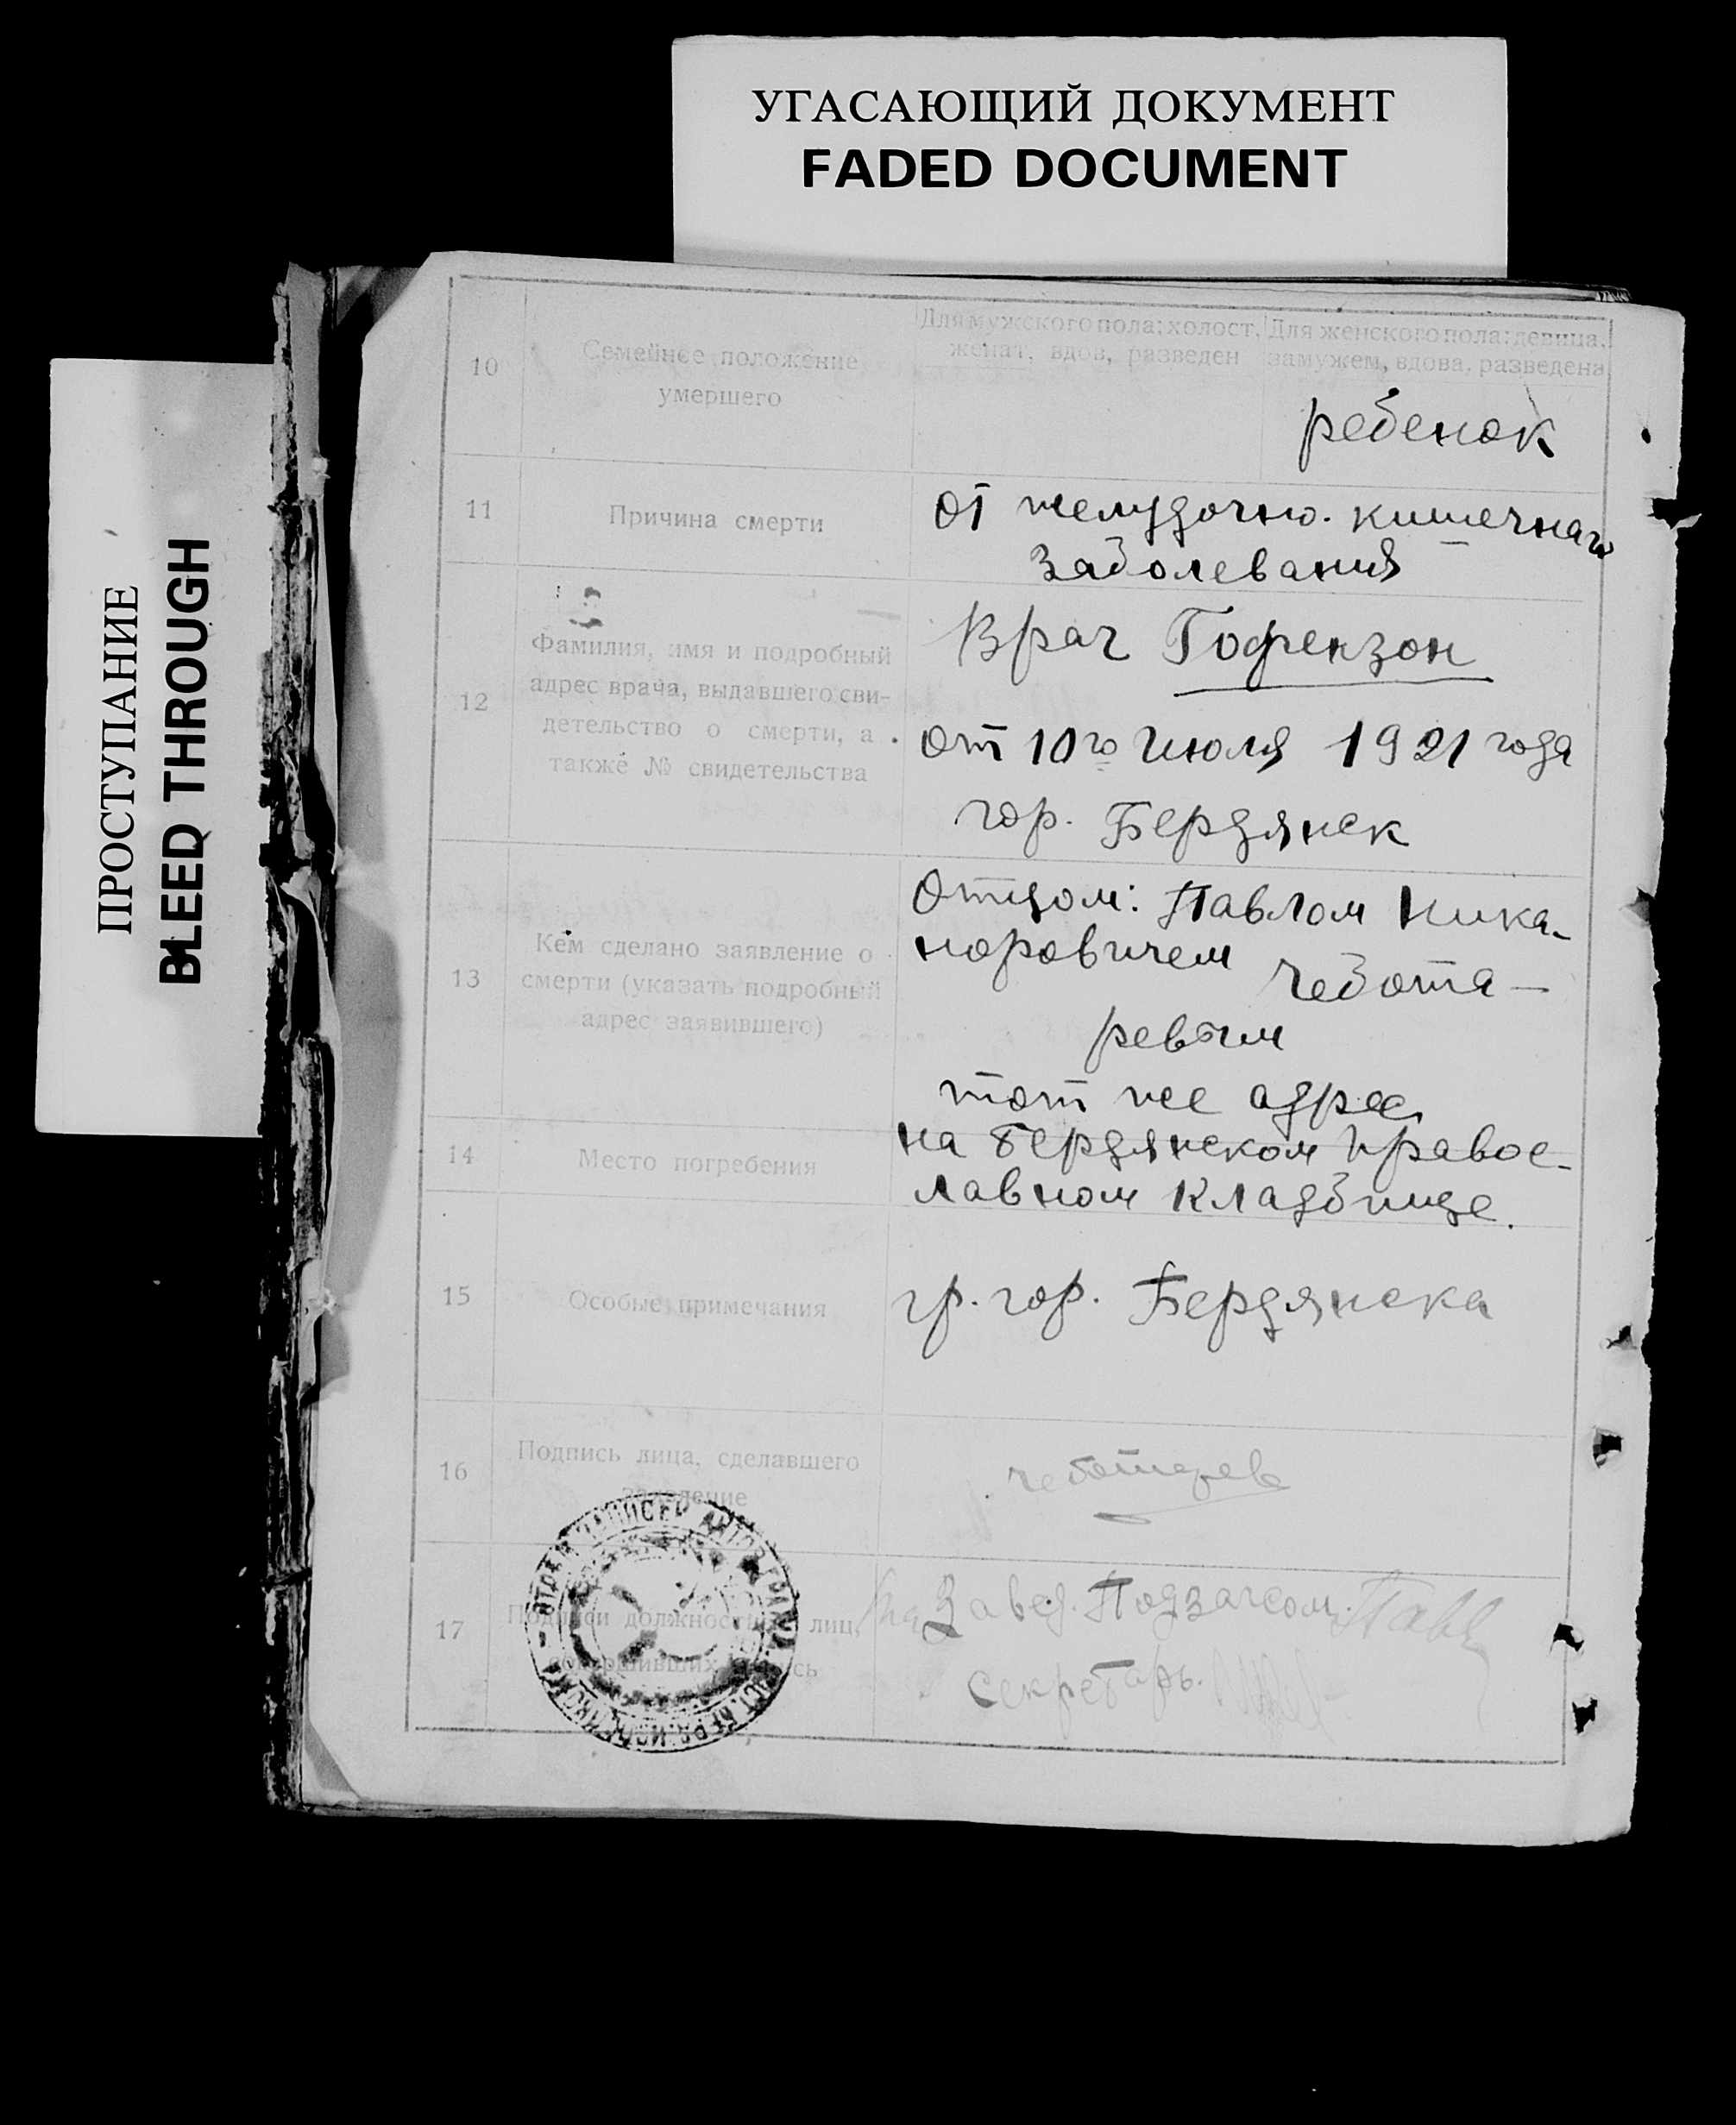 УГАСАЮЩИЙ ДОКУМЕНТ
FADED DOCUMENT
ПРОСТУПАНИЕ
BLEED THROUGH
10
Семейное положение
умершего
Для мужского пола: холост,
женат, вдов, разведен
Для женского пола: девица,
замужем, вдова, разведена
ребенок
11
Причина смерти
От желудочно-кишечнаго
заболевания
12
Фамилия, имя и подробный
адрес врача, выдавшего сви-
детельство о смерти, а
также № свидетельства
Врач Гофензон
от 10го Июля 1921 года
гор. Бердянск
13
Кем сделано заявление о
смерти (указать подробный
адрес заявившего)
Отцом: Павлом Ника-
норовичем Чебота-
ревым
тот же адрес
14
Место погребения
на Бердянском правос-
лавном кладбище.
15
Особые примечания
гр. гор. Бердянска
16
Подпись лица, сделавшего
заявление
Чеботарев
17
Подписи должностных лиц,
совершивших запись
Завед. Подзагсом
Секретарь